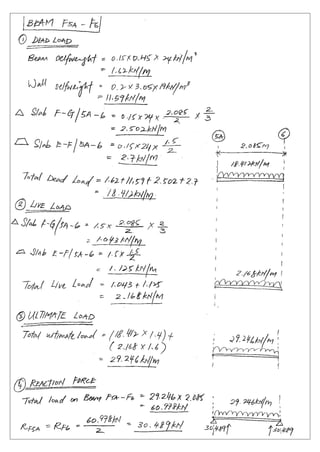 BEAM F5A - F6
① DEAD LOAD
Beam selfweight = 0.15 x 0.45 x 24 kN/m³
= 1.62 kN/m
Wall selfweight = 0.2 x 3.05 x 19 kN/m³
= 11.59 kN/m
△ Slab F-G/5A-6 = 0.15 x 24 x 2.085/2 x 2/3
= 2.502 kN/m
Slab E-F/5A-6 = 0.15 x 24 x 1.5/2
= 2.7 kN/m
Total Dead Load = 1.62 + 11.59 + 2.502 + 2.7
= 18.412 kN/m
5A 6
2.085m
18.412 kN/m
② LIVE LOAD
△ Slab F-G/5A-6 = 1.5 x 2.085/2 x 2/3
= 1.043 kN/m
Slab E-F/5A-6 = 1.5 x 1.5/2
= 1.125 kN/m
Total Live Load = 1.043 + 1.125
= 2.168 kN/m
2.168 kN/m
③ ULTIMATE LOAD
Total ultimate load = (18.412 x 1.4) +
(2.168 x 1.6)
= 29.246 kN/m
29.246 kN/m
④ REACTION FORCE
Total load on Beam F5A-F6 = 29.246 x 2.085
= 60.978 kN
RF5A = RF6 = 60.978 kN/2 = 30.489 kN
29.246 kN/m
30.489↑ ↑30.489